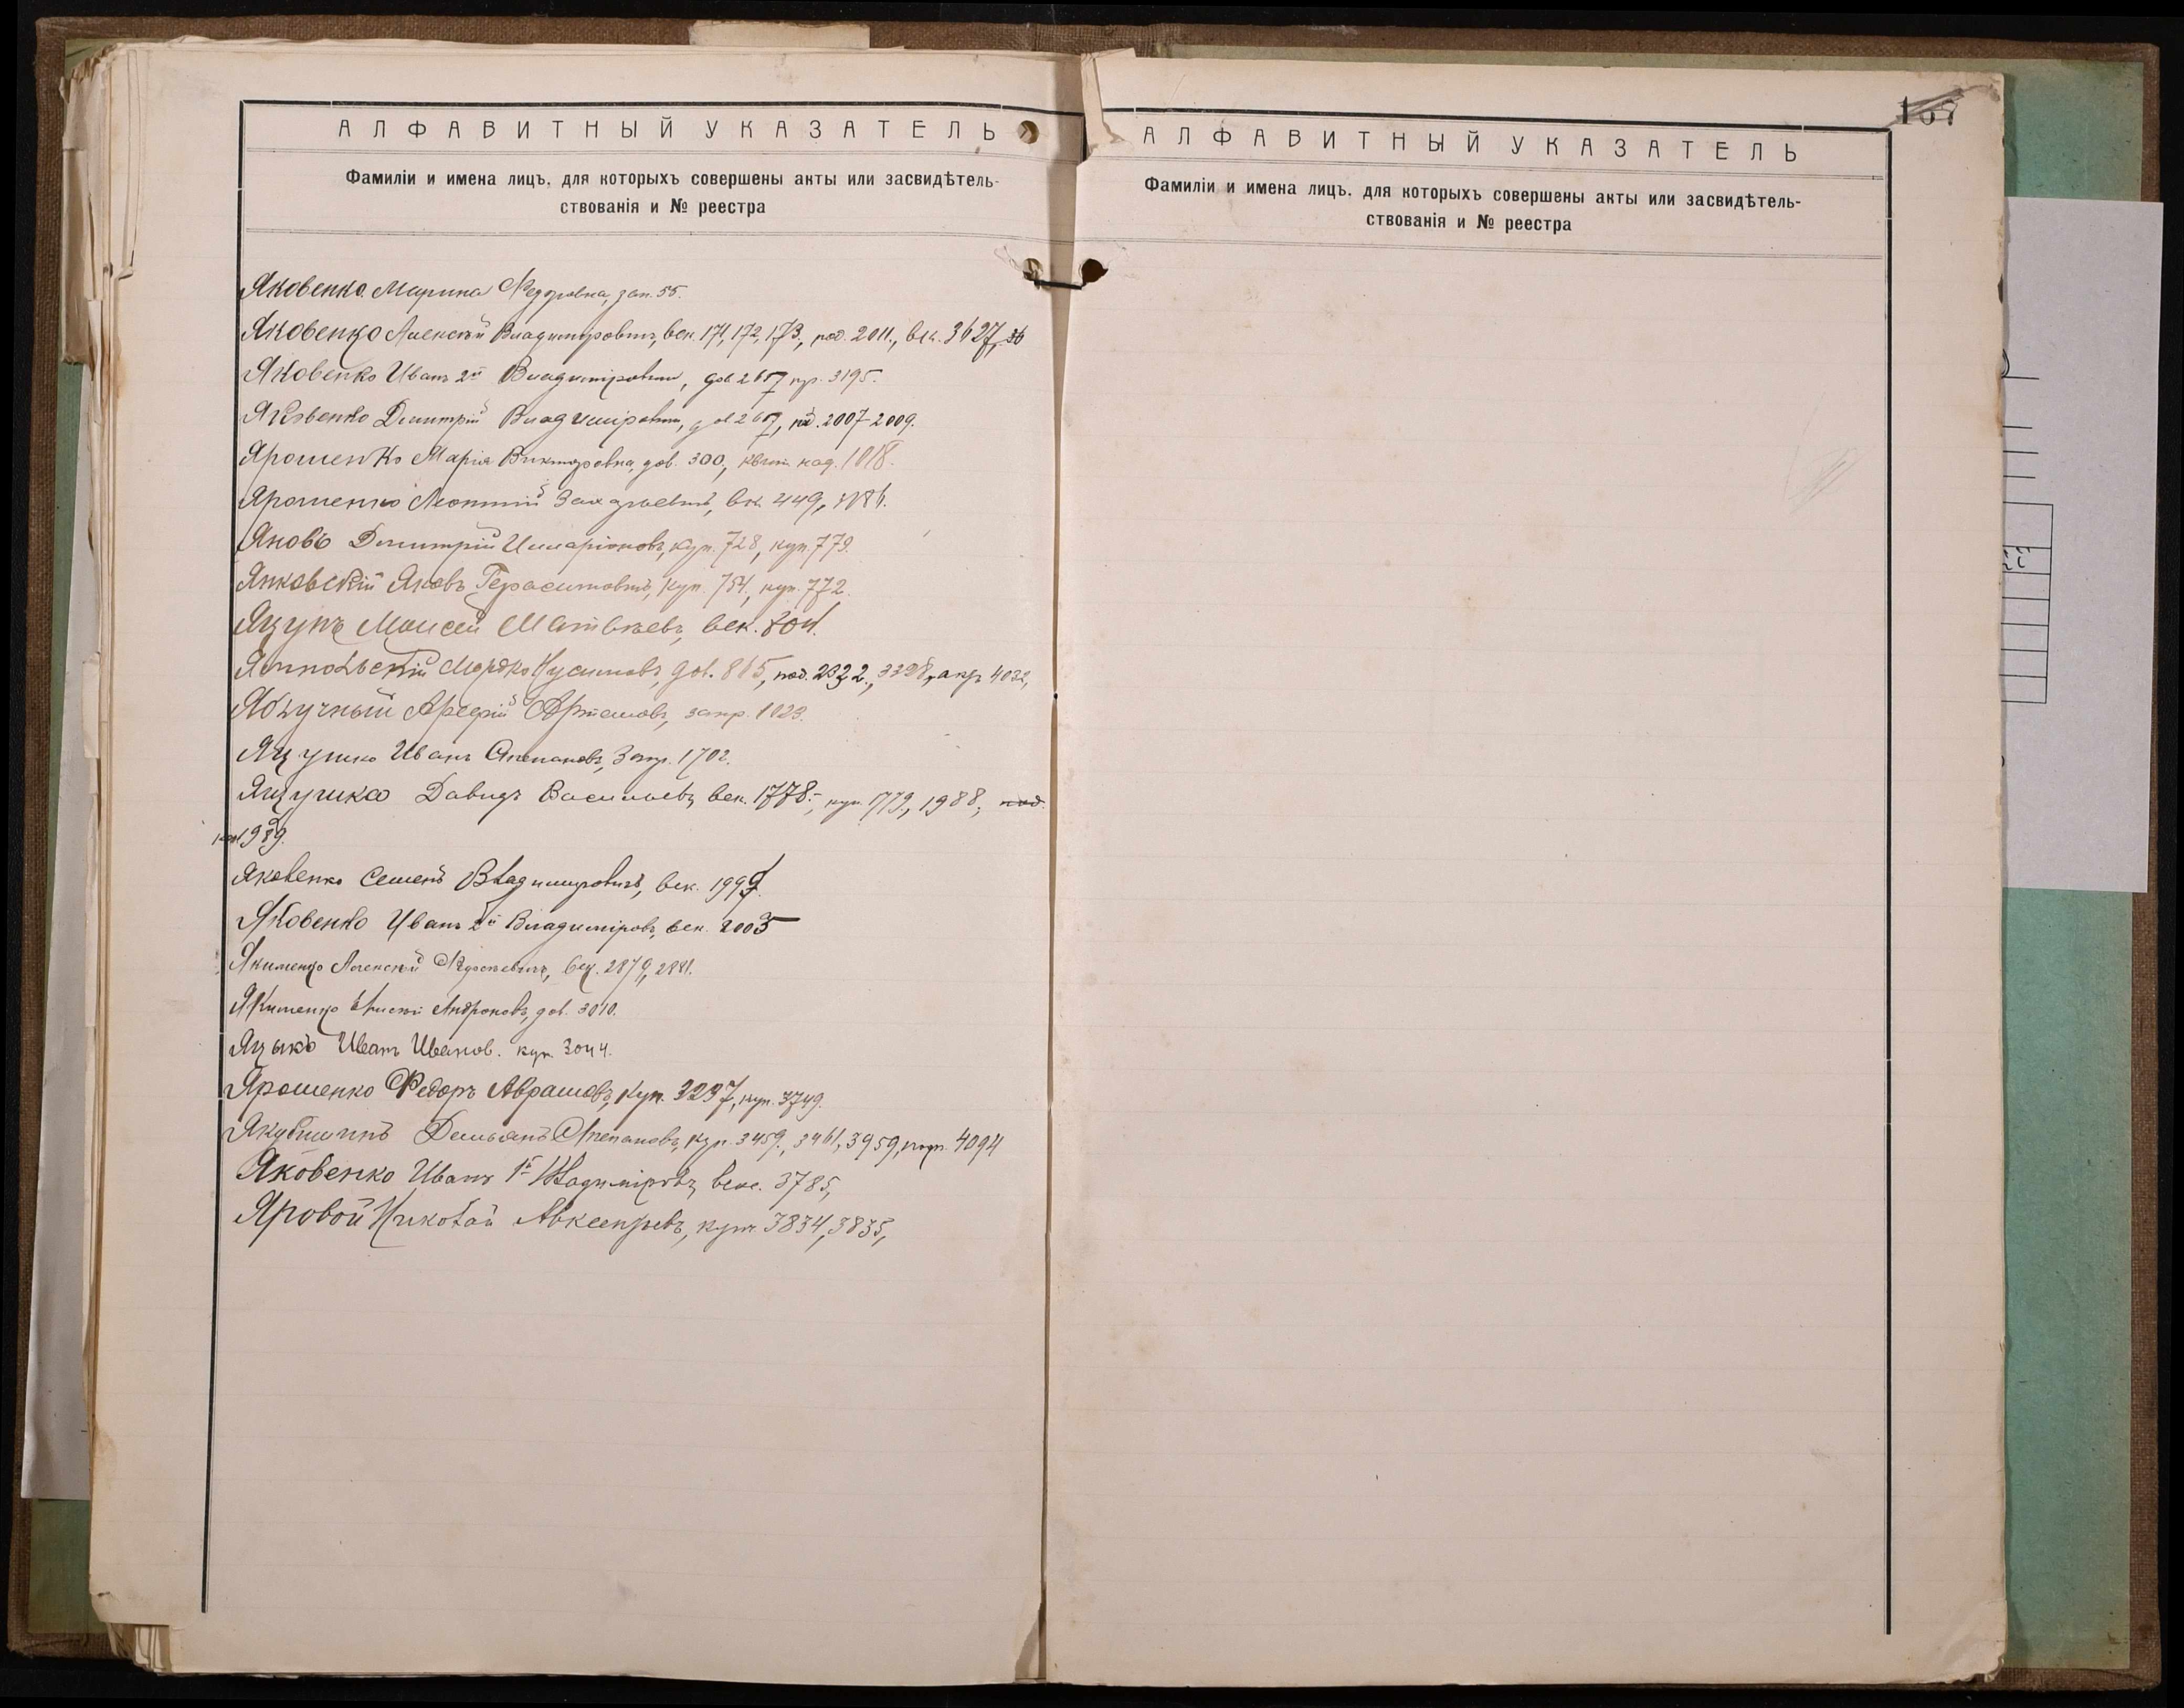 АЛФАВИТНЫЙ УКАЗАТЕЛЬ
Фамиліи и имена лицъ, для которыхъ совершены акты или засвидѣтель-
ствованія и № реестра
Яковенко Марина Федоровна, зап. 55.
Яковенко Алексѣй Владимировичъ, век. 171, 172, 173, под. 2011., век. 3627,
Яковенко Иванъ 2й Владиміровичъ, дов. 2607 пр. 3195.
Яковенко Димитрій Владиміровичъ, дов. 2607, под. 2007-2009.
Ярошенко Марія Викторовна, дов. 300, 1018.
Ярошенко Леонтій Захарьевичъ, век. 449,
Димитрій Иларіоновъ, куп. 728, куп. 779.
Янковскій Яковъ Герасимовичъ, куп. 754, куп. 772.
Яцунъ Моисей Матвѣевъ, век. 804.
Ямпольскій Мордко Нусимовъ, дов. 865, под. 2332., 3328, 4032,
Яблучный Артемовъ, запр. 1023.
Яцушко Иванъ Степановъ, Запр. 1702.
Яцушко Давидъ Васильевъ, век. 1778., куп. 1779, 1988, под.
1989.
Яковенко Семенъ Владимировичъ, век. 1997.
Яковенко Иванъ 2й Владиміровъ, век. 2003
Якименко Алексѣй Федосѣевичъ, век. 2879, 2881.
Якименко Андроновъ, дов. 3010.
Яцыкъ Иванъ Иванов. куп. 3044.
Ярошенко Федоръ Аврамовъ, куп. 3237, куп. 3749.
Демьянъ Степановъ, куп. 3459., 3461, 3959, 4094
Яковенко Иванъ 1й Владиміровъ, векс. 3785,
Яровой Николай Авксентьевъ, купч. 3834, 3835,
167
АЛФАВИТНЫЙ УКАЗАТЕЛЬ
Фамиліи и имена лицъ, для которыхъ совершены акты или засвидѣтель-
ствованія и № реестра